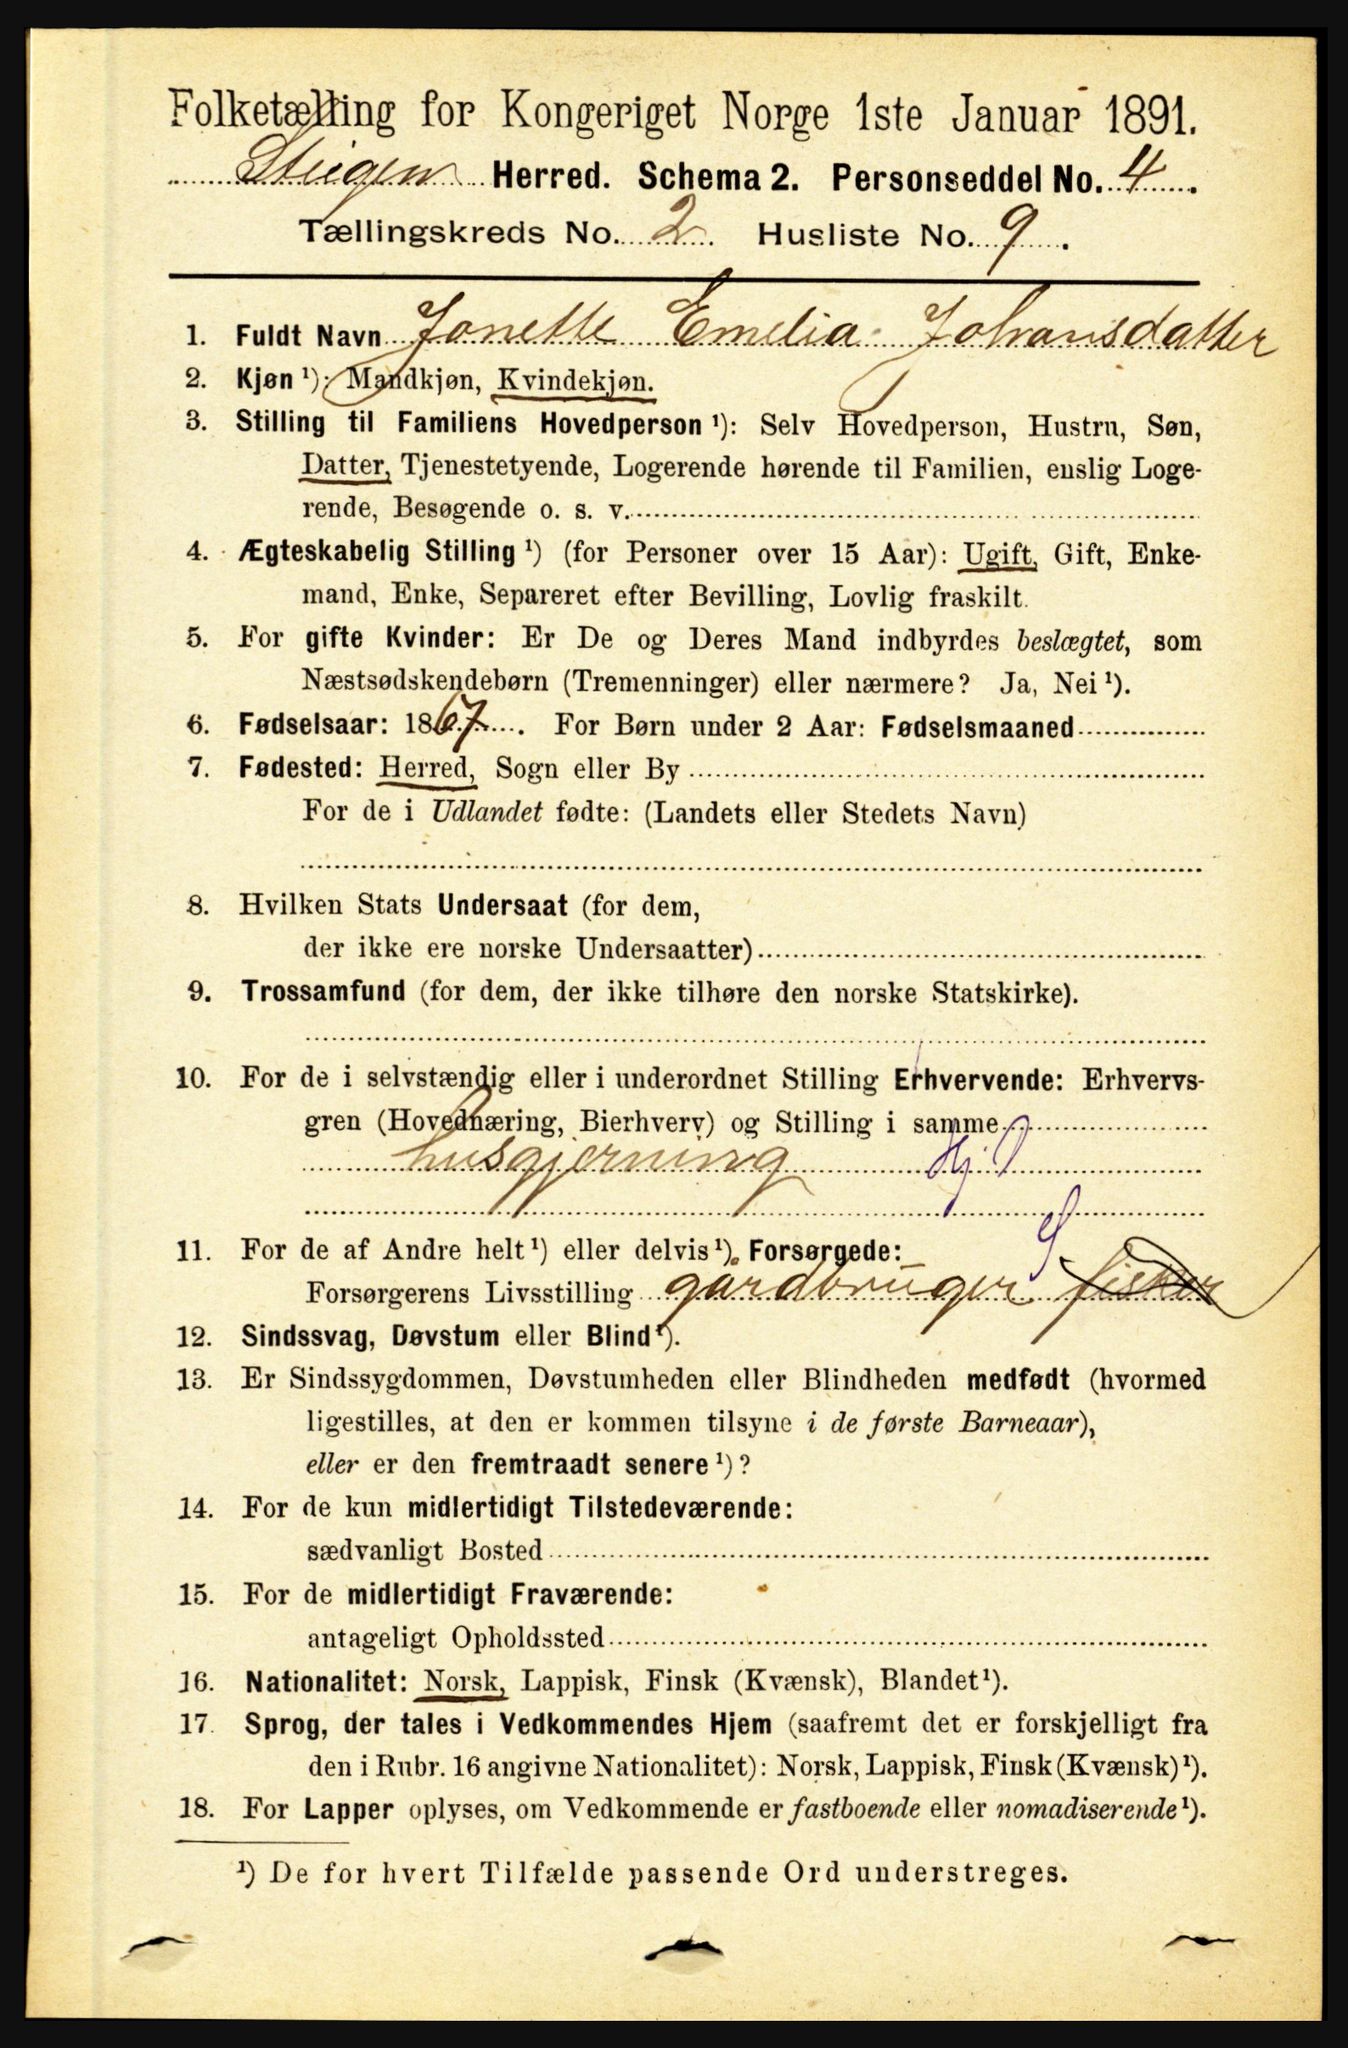 Folketælling for Kongeriget Norge 1ste Januar 1891.
Steigen Herred. Schema 2. Personseddel No. 4.
Tællingskreds No. 2. Husliste No. 9.
1. Fuldt Navn Jonette Emelia Johansdatter
2. Kjøn ¹): Mandkjøn, Kvindekjøn.
3. Stilling til Familiens Hovedperson ¹): Selv Hovedperson, Hustru, Søn,
Datter, Tjenestetyende, Logerende hørende til Familien, enslig Loge-
rende, Besøgende o. s. v.
4. Ægteskabelig Stilling ¹) (for Personer over 15 Aar): Ugift, Gift, Enke-
mand, Enke, Separeret efter Bevilling, Lovlig fraskilt.
5. For gifte Kvinder: Er De og Deres Mand indbyrdes beslægtet, som
Næstsødskendebørn (Tremenninger) eller nærmere? Ja, Nei ¹).
6. Fødselsaar: 1867. For Børn under 2 Aar: Fødselsmaaned
7. Fødested: Herred, Sogn eller By
For de i Udlandet fødte: (Landets eller Stedets Navn)
8. Hvilken Stats Undersaat (for dem,
der ikke ere norske Undersaatter)
9. Trossamfund (for dem, der ikke tilhøre den norske Statskirke).
10. For de i selvstændig eller i underordnet Stilling Erhvervende: Erhvervs-
gren (Hovednæring, Bierhverv) og Stilling i samme
husgjerning Hj D
11. For de af Andre helt ¹) eller delvis ¹) Forsørgede:
Forsørgerens Livsstilling gårdbruger S fisker
12. Sindssvag, Døvstum eller Blind ¹).
13. Er Sindssygdommen, Døvstumheden eller Blindheden medfødt (hvormed
ligestilles, at den er kommen tilsyne i de første Barneaar),
eller er den fremtraadt senere ¹)?
14. For de kun midlertidigt Tilstedeværende:
sædvanligt Bosted
15. For de midlertidigt Fraværende:
antageligt Opholdssted
16. Nationalitet: Norsk, Lappisk, Finsk (Kvænsk), Blandet ¹).
17. Sprog, der tales i Vedkommendes Hjem (saafremt det er forskjelligt fra
den i Rubr. 16 angivne Nationalitet): Norsk, Lappisk, Finsk (Kvænsk) ¹).
18. For Lapper oplyses, om Vedkommende er fastboende eller nomadiserende ¹).
¹) De for hvert Tilfælde passende Ord understreges.